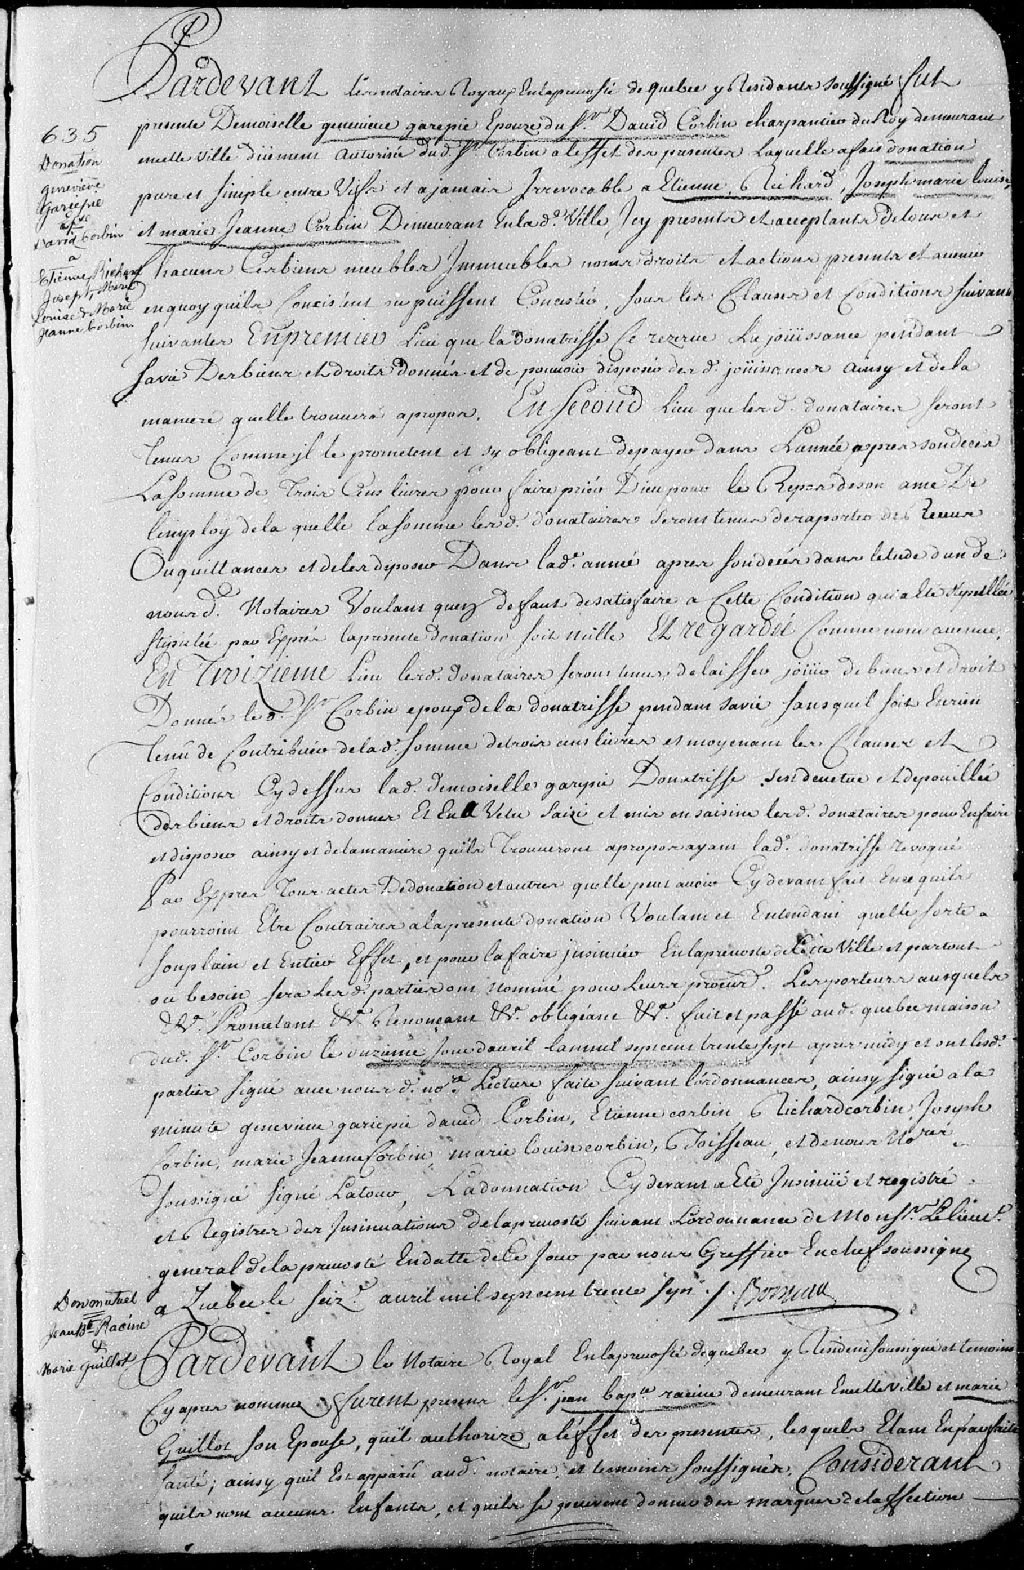 Pardevant les notaires Royaux En la prevosté de quebec y Residants soussigné fut
635
Donation
Geneviève
Gariépie
David Corbin
a
Etienne, Richard
Joseph, Marie
Louise & Marie
Jeanne Corbin
presente Demoiselle genevieve garepie Epouze du Sr. David Corbin charpantier du Roy demeurant
en cette ville düement autorisée dud. Sr. Corbin a leffet des presentes Laquelle a fait donation
pure et simple entre Vifs et a jamais Irrevocable a Etienne, Richard, Joseph marie louise,
et marie Jeanne Corbin Demeurant En lad. Ville, Icy presents et acceptants de tous et
Chacuns Ces biens meubles Immeubles noms droits et actions presents et avenir
en quoy quils Concistent ou puissent Concister, sous les Clauses et Conditions suivant
suivantes En premier Lieu que la donatrisse Ce rezerve La joüissance pendant
sa vie Des biens et droits donnés et de pouvoir disposer desd. joüissances ainsy et de la
maniere quelle trouvera apropos. En Second Lieu que lesd. donataires seront
tenus Comme jl le prometent et sy obligeant de payer dans Lannée apres son deces
La somme de Trois Cens livres pour faire prier Dieu pour le Repos de son ame De
lemploy de la quelle la somme lesd. donataires seront tenus de raporter des Reçus
Ou quittances et de les deposer Dans lad. année apres son decés dans letude dun de
nousd. Notaires Voulant quez defaut de satisfaire a Cette Condition qui a Eté
stipulée par Exprés la presente donation soit nulle Et regardée Comme non avenue,
En Troizieme Lieu lesd. donataires seront tenus de laisser joüir de biens et droit
Donnés led. Sr. Corbin epoux de la donatrisse pendant sa vie sans quil soit En rien
tenu de Contribuer de lad. somme de trois cens livres et moyenant les Clauses et
Conditions Cy dessus lad. demoiselle garepie Donatrisse sest devetue et depouillée
des biens et droits donnés Et En a Vetu saisi et mis en saisine lesd. donataires pour En faire
et disposer ainsy et de la maniere quils Trouveront apropos ayant lad. donatrisse revoqué
Par Exprés Tous actes De donation et autres quelle peut avoir Cy devant fait En ce quils
pourroient Etre Contraires a la presente donation Voulant et Entendant quelle sorte
son plain et Entier Effet, et pour la faire jnsinuer En la prevosté de Cette Ville et partout
ou besoin sera Lesd. parties ont nommé pour Leurs procur. Les porteurs ausquels
&c. Prometant &c. Renonçant &c. obligeant &c. fait et passé aud. quebec maison
dud. Sr. Corbin le onzieme jour davril lan mil sept cent trente sept apres midy et ont lesd.
parties signé avec nousd. nores Lecture faite suivant lordonnances, ainsy signé a la
minute genevieve gariepie david Corbin, Etienne corbin, Richard corbin, Joseph
Corbin, marie Jeanne Corbin marie louise corbin, Boisseau, et de nous Nores
soussigné signé Latour, La donnation Cy devant a Eté Insinüé et registré
et Registres des Insinuations de la prevosté suivant Lordonnance de Monsr. Le lieut.
general de la prevosté En datte de Ce Jour par nous Greffier En chef soussigné
a Quebec le seize. avril mil sept cent trente sept /. Boisseau
Don mutuel
Jean Bte Racine
&
Marie Guillot
Pardevant le Notaire Royal En la prevosté de quebec y Residant soussigné et temoins
Cy apres nommés furent presens le Sr. jean bapte racine demeurant En cette Ville et marie
Guillot son Epouse, quil authorize a léffet des presentes, lesquels Etant En parfaite
santé; ainsy quil Est apparü aud. notaire, et temoins soussignés, Considerant
quils nont aucuns Enfants, et quils se peuvent donner des marques de laffection